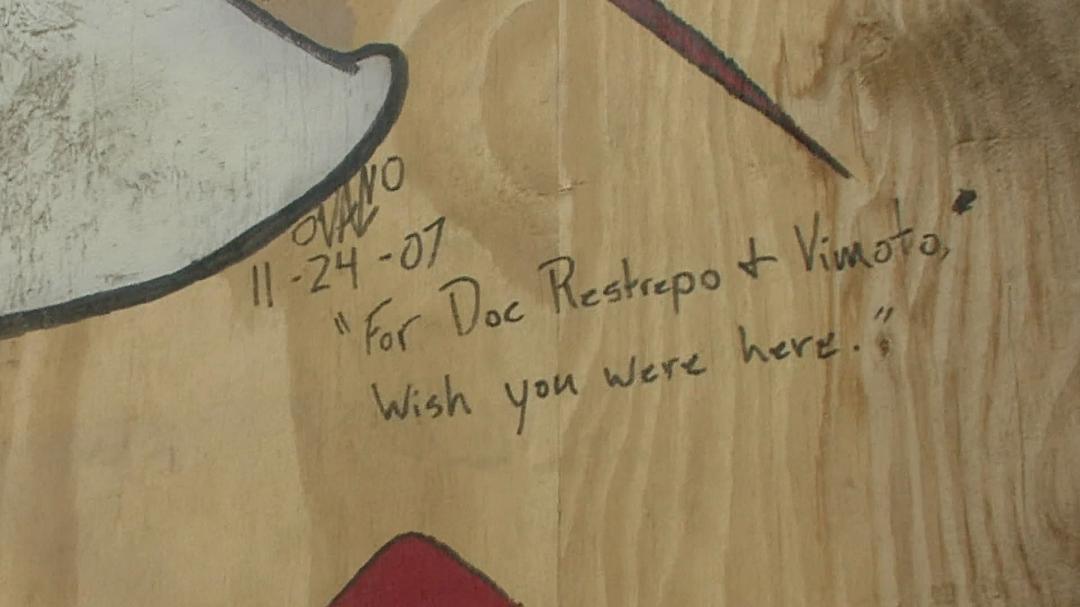 OVALNO
11-24-07
"For Doc Restrepo + Vimoto,"
Wish you were here."